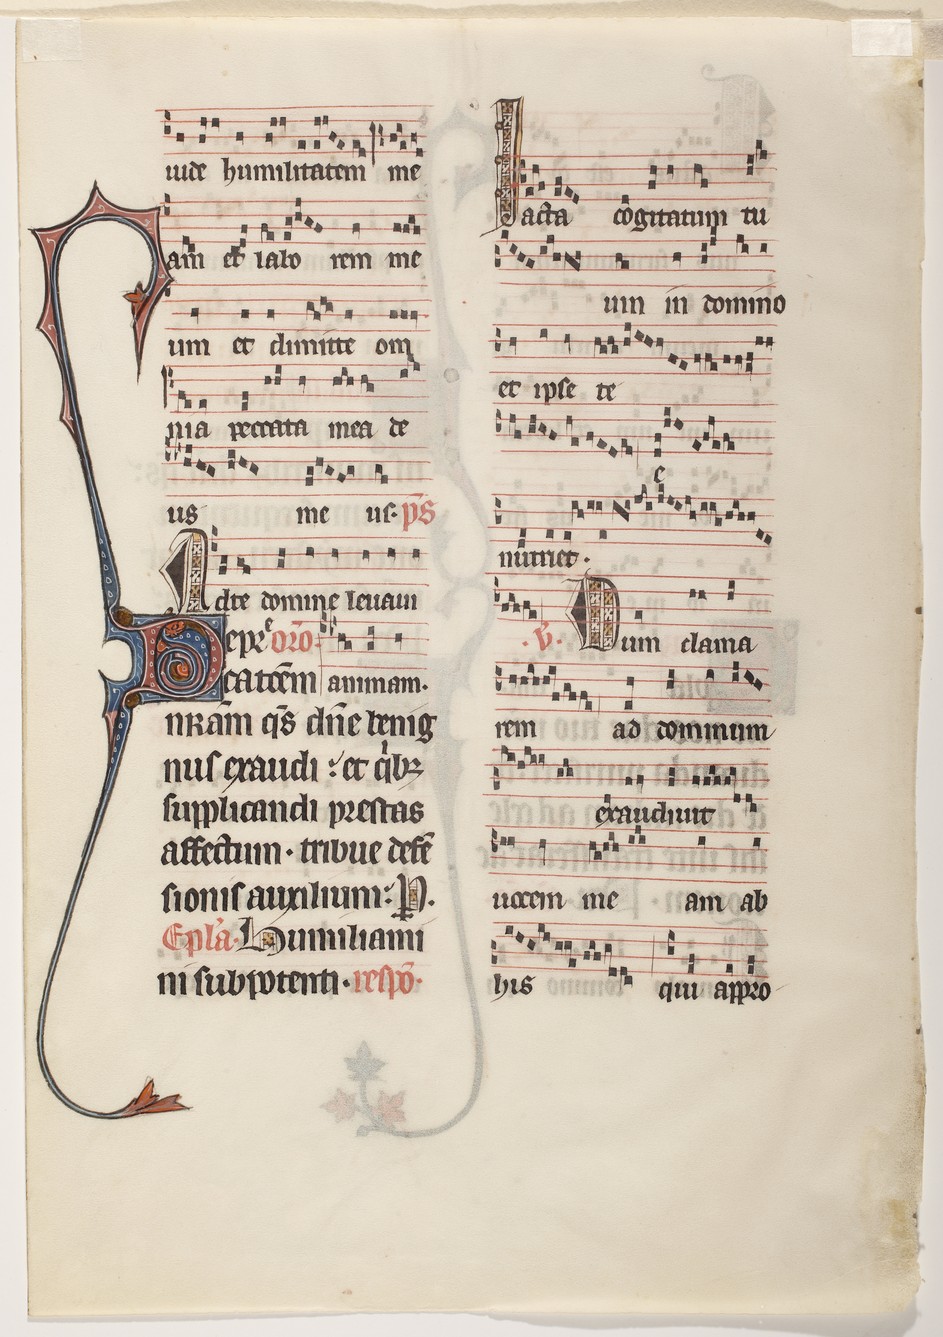 uide humilitatem me
am et labo rem me
um et dimitte om
nia peccata mea de
us me us. ps̄
Ad te domine leuaui
Depr̄e oro.
catōem animam.
nrām q̄s dn̄e benig
nus exaudi : et q̄bꝫ
supplicandi prestas
affectum . tribue defē
sionis auxilium : P.
Epl̄a. Humiliami
ni sub potenti . respō.
Iacta cogitatum tu
um in domino
et ipse te
e
nutriet .
. V̄. Dum clama
rem ad dominum
exaudiuit
uocem me am ab
his qui appro